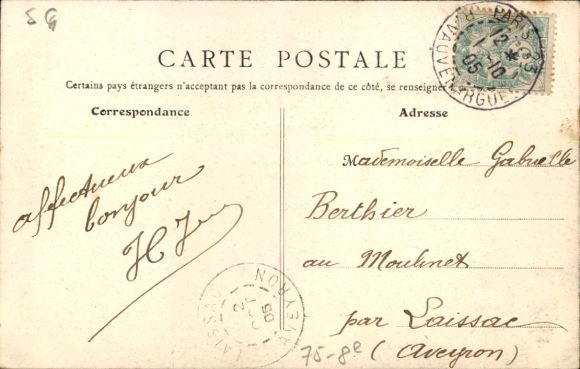 56
CARTE POSTALE
Certains pays étrangers n'acceptant pas la correspondance de ce côté, se renseigner
Correspondance
Adresse
affectueux
bonjour
Mademoiselle Gabrielle
Berthier
au Moulinet
par Laissac
(Aveyron)
PARIS
R. VAUVENARGUES
12
1 -10
05
LAISSAC
AVEYRON
2
05
75-8e